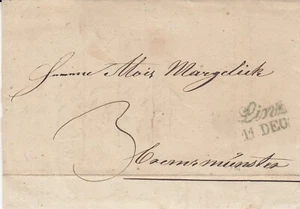 Alois Margelick
Linz
11 DEC
3
Cremsmünster